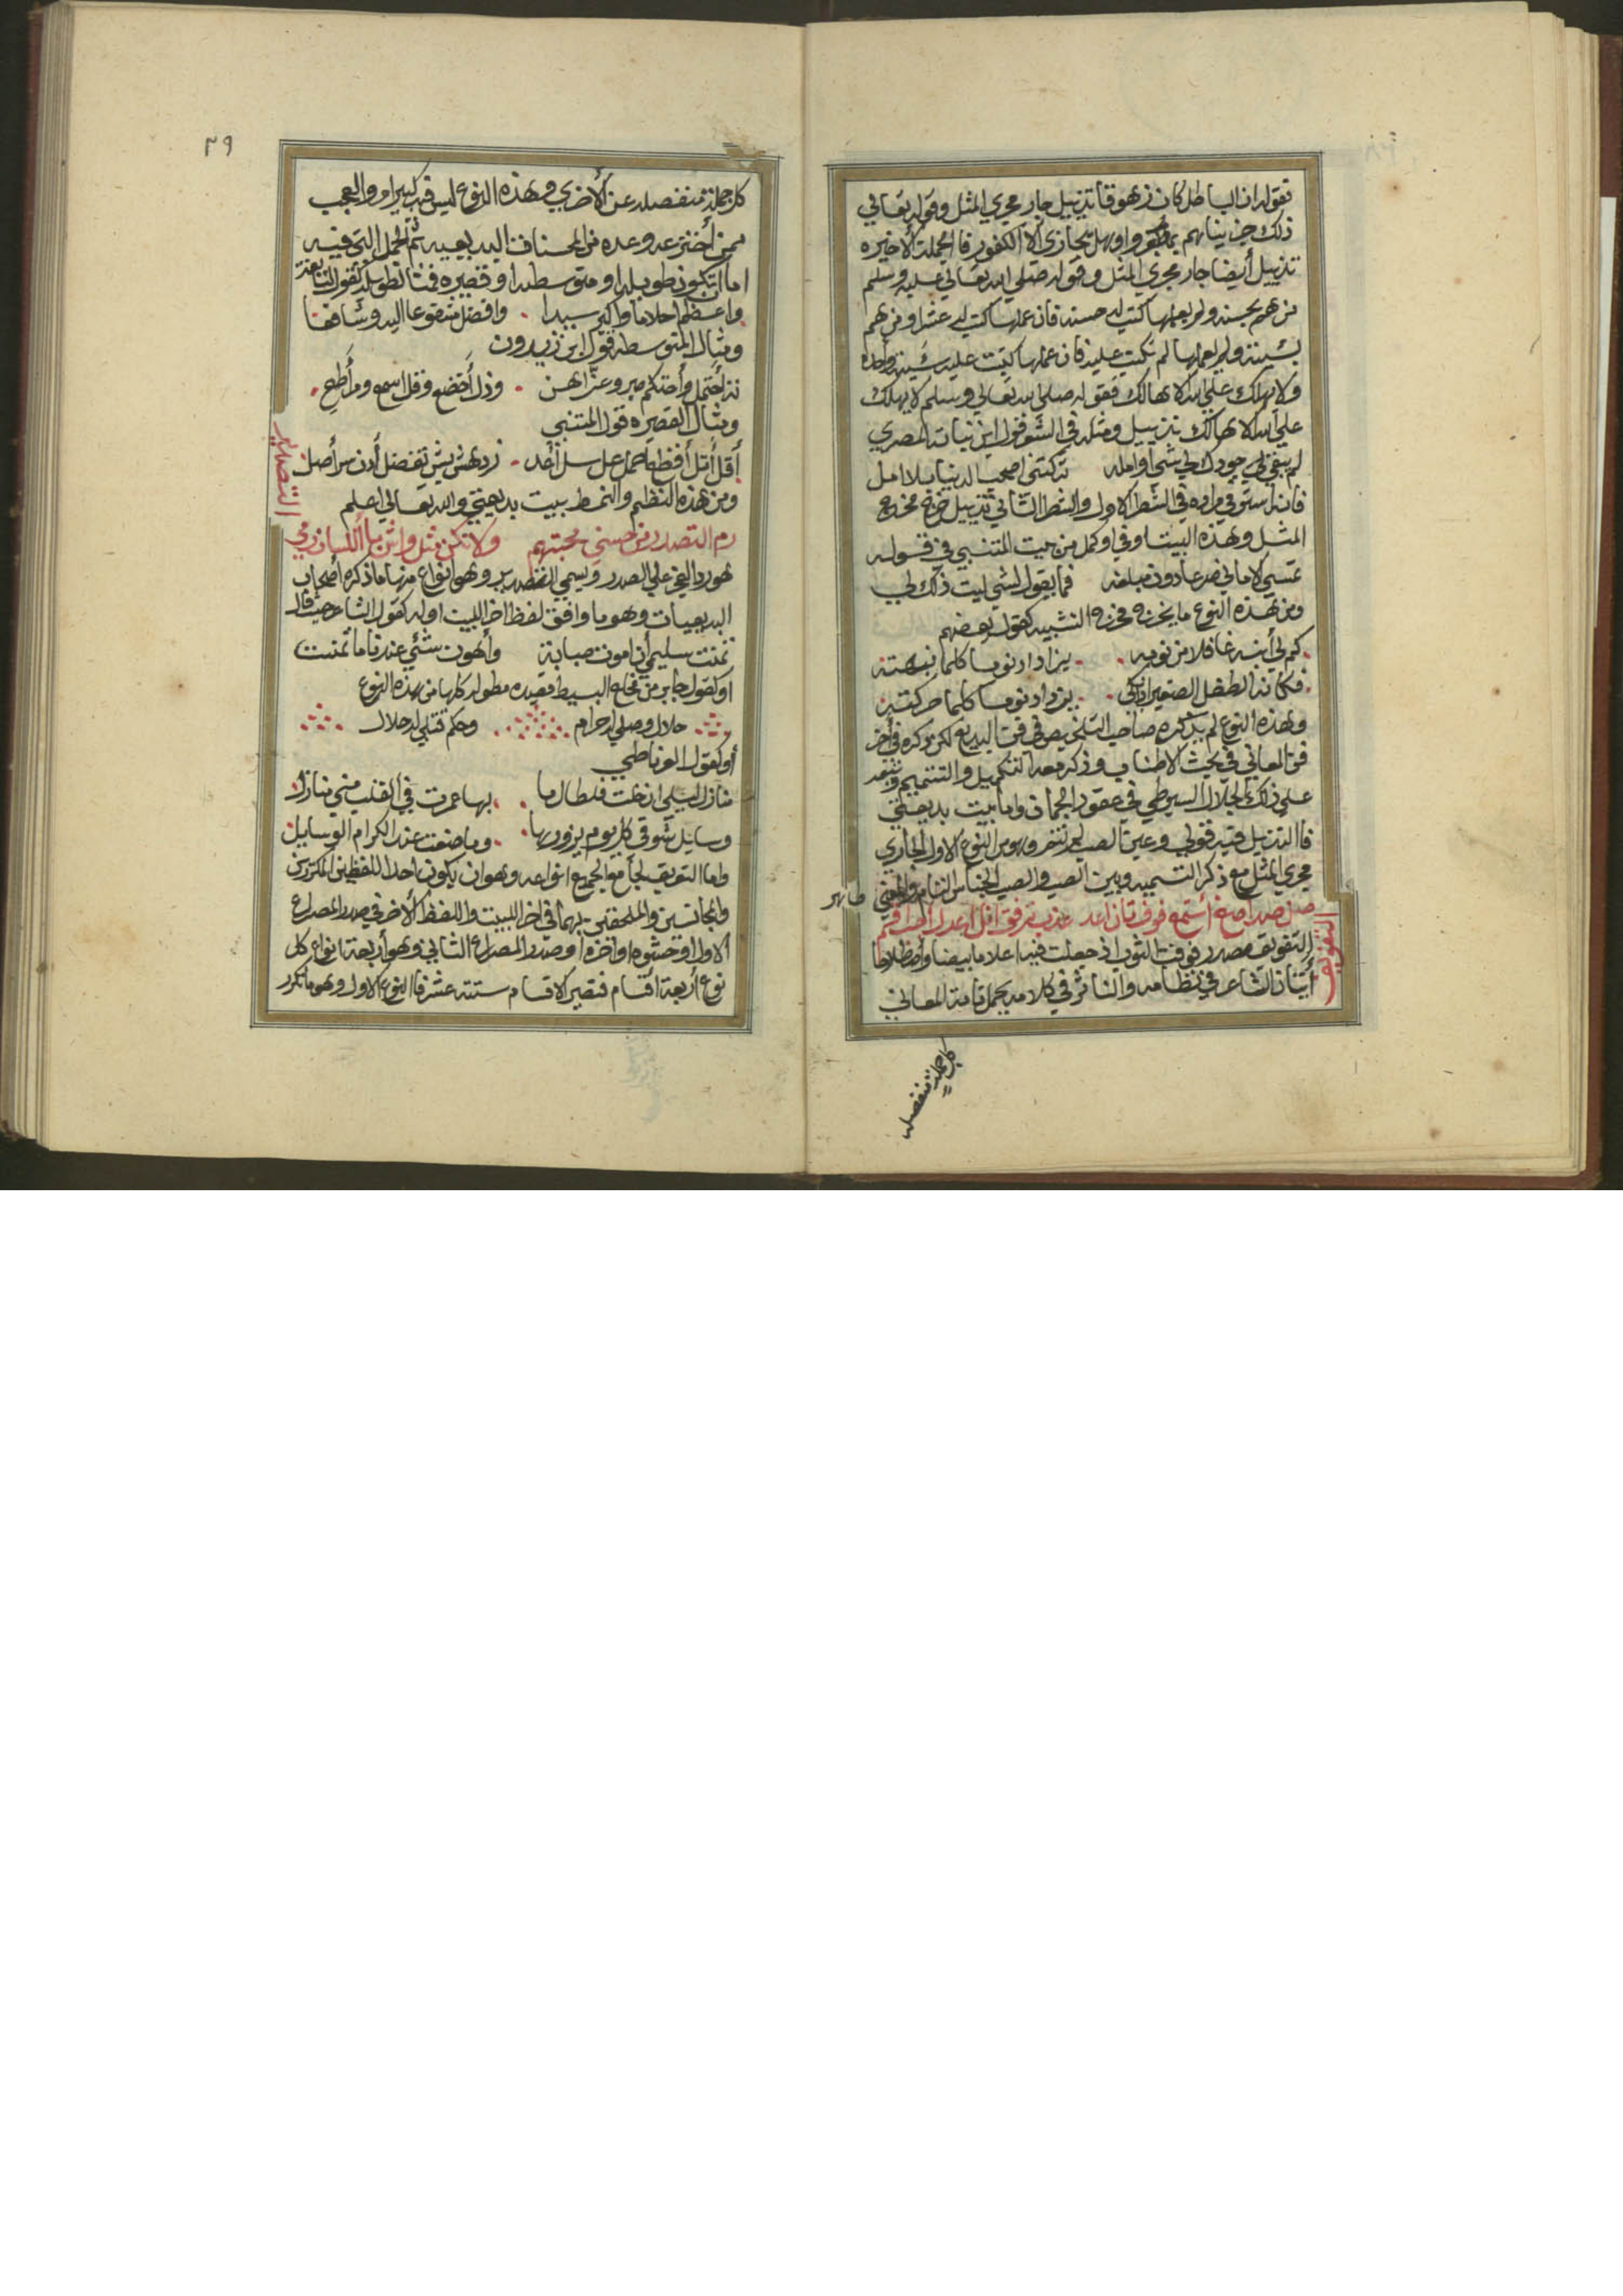 فقوله ان الباطل كان زهوقا تذييل جار مجري المثل وقوله تعالي
ذلك جزيناهم بما كفروا وهل يجازي الا الكفور فالجملة الاخيره
تذييل أيضا جار مجري المثل وقوله صلي الله تعالي عليه وسلم
من هم بحسنه ولم يعملها كتب له حسنه فان عملها كتب له عشرا ومن هم
بسيئة ولم يعملها لم تكتب عليه فان عملها كتبت عليه سيئة واحده
ولا يهلك علي الله الا هالك فقوله صلي الله تعالي وسلم لا يهلك
علي الله الا هالك تذييل ومثله في الشعر قول ابن نباته المصري
لم يبق لي جودك لي شيأ اوامله تركتني اصحب الدنيا بلا امل
فانه استوفي مراده في الشطر الاول والشطر الثاني تذييل خرج مخرج
المثل وهذا البيت اوفي واكمل من بيت المتنبي في قوله
تمسي الاماني صرعا دون مبلغه فما يقول لشي ليت ذلك لي
ومن هذه النوع ما يخرج مخرج التشبيه كقول بعضهم
كم لي أنبه غافلا من نومه يزاداد نوما كلما نبهته
فكانه الطفل الصغير اذا بكي يزداد نوما كلما حركته
وهذه النوع لم يذكره صاحب التلخيص في فن البديع لكن ذكره في أخر
فن المعاني في بحث الاطناب وذكر معه التكميل والتتميم وتبعه
علي ذلك الجلال السيوطي في عقود الجمان واما بيت بديعتي
فالتذييل فيه قولي وعين الصب لم تنم وهو من النوع الاول الجاري
مجري المثل مع ذكر التسميه وبين الصب والصب الجناس التام والمعني ظاهر
التفويف
التفويف مصدر فوفت الثوب اذ جعلت فيه اعلاما بيضا واصطلاحا
أتيان الشاعر في نظامه والناثر في كلامه بجمل تامة المعاني
كل جملة منفصله
٣٩
كل جملة منفصله عن الأخري وهذه النوع ليس فيه كبير امر والعجب
ممن أخترعه وعده من المحسنات البديعيه ثم الجمل التي فيه
اما ان تكون طويله او متوسطه او قصيره فمثال الطويله كقول النابغة
واعظم احلاما واكبر سيدا وافضل مشفوعا اليه وشافعا
ومثال المتوسطه قول ابن زيدون
ته أحتمل وأحتكم اصبر وعز اهن وذل أخضع وقل اسمع ومر أطع
ومثال القصيره قول المتنبي
أقل أنل أقطع احمل عل سل أعد زد هش بش تفضل أدن سر أصل
ومن هذه النظم والنمط بيت بديعتي والله تعالي اعلم
التصدير
رم التصدر من حسني محبتهم ولا تكن
هو رد العجز علي الصدر ويسمي التصدير وهو أنواع منها ما ذكره أصحاب
البديعيات وهو ما وافق لفظ اخر البيت اوله كقول الشاعر حيث قال
تمنت سليمي أن أموت صبابة وأهون شئي عندنا ما تمنت
او كقول جابر من مخلع البسيط قصيده مطوله كلها من هذه النوع
حلال وصلي له حرام وحكم قتلي له حلال
أو كقول الغرناطي
منازل ليلي ان خلت فلطالما بها عمرت في القلب مني منازل
وسايل شوقي كل يوم يزورها وما ضيعت عند الكرام الوسايل
واما التعريف الجامع لجميع انواعه وهو ان يكون احد اللفظين المكررين
والمجانسين والملحقين بهما في اخر البيت واللفظ الأخر في صدر المصراع
الاول او حشوه او اخره او صدر المصراع الثاني وهو أربعة انواع كل
نوع أربعة أقسام فتصير الاقسام ستة عشر فالنوع الاول وهو ما تكرر